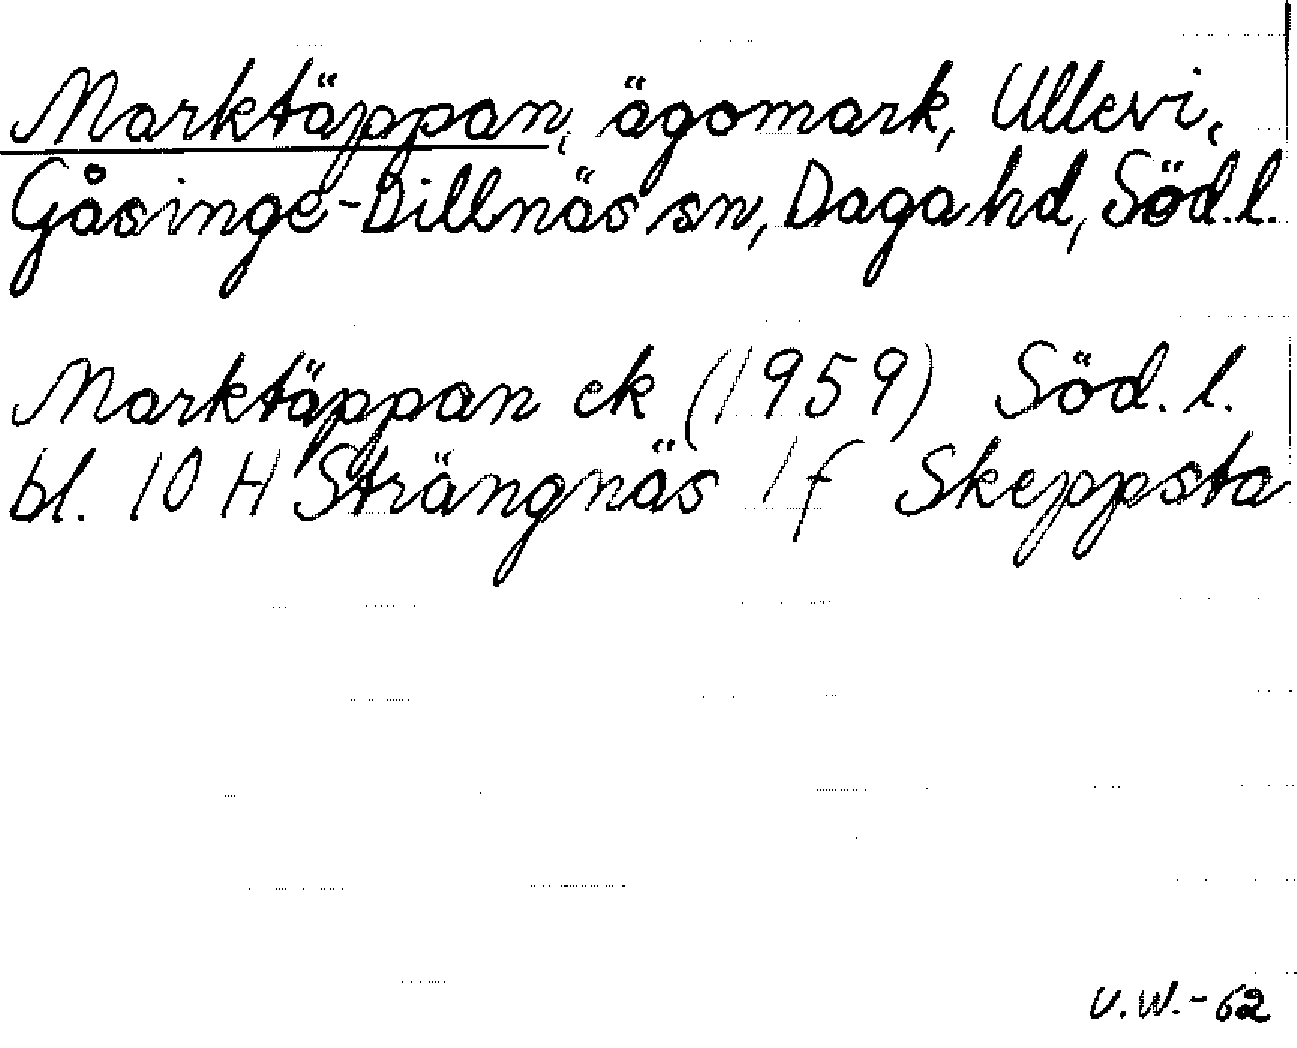 Marktäppan, ägomark, Ullevi,
Gåsinge-Dillnäs sn, Daga hd, Söd.l.
Marktäppan ek (1959) Söd.l.
bl. 10 H Strängnäs 1f Skeppsta
U.W.-62